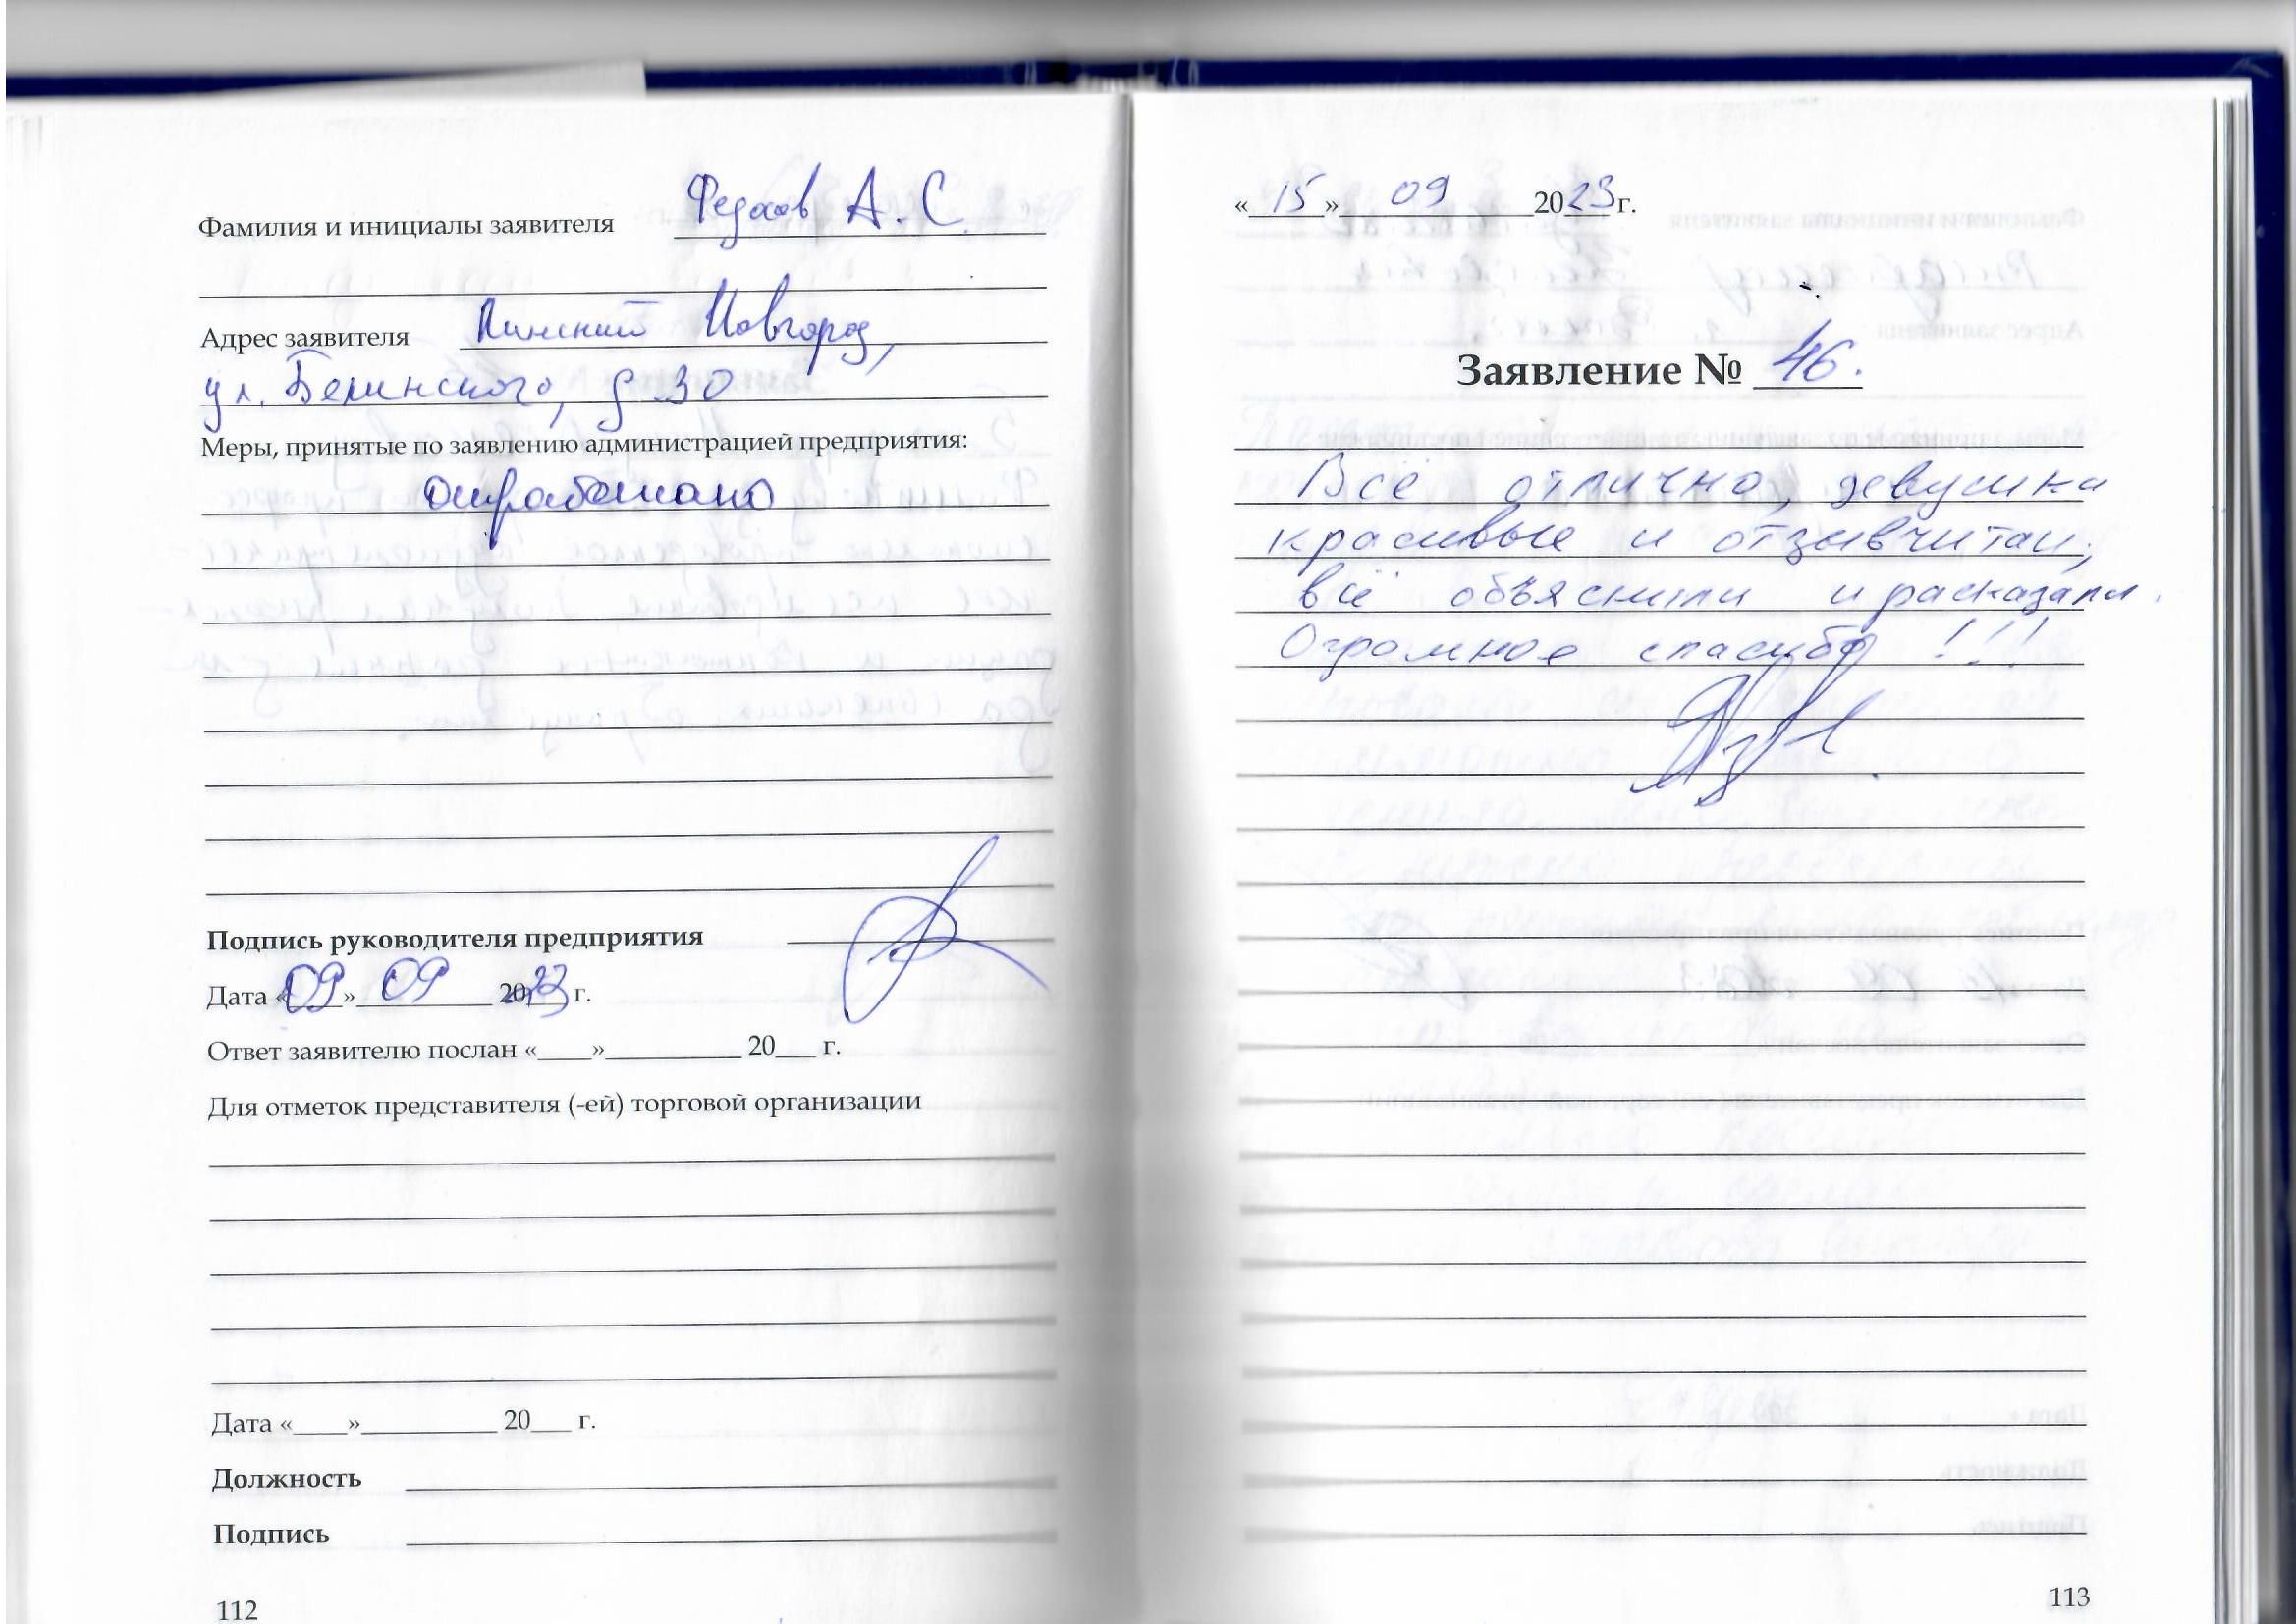 Фамилия и инициалы заявителя А. С.
Адрес заявителя Нижний Новгород,
ул. Белинского, д 30
Меры, принятые по заявлению администрацией предприятия:
отработано
Подпись руководителя предприятия
Дата «09» 09 2023 г.
Ответ заявителю послан «____»__________ 20___ г.
Для отметок представителя (-ей) торговой организации
Дата «____»__________ 20___ г.
Должность
Подпись
112
«15» 09 2023 г.
Заявление № 46.
Всё отлично, девушки
красивые и отзывчитаи,
всё объяснили и расказали.
Огромное спасибо !!!
113